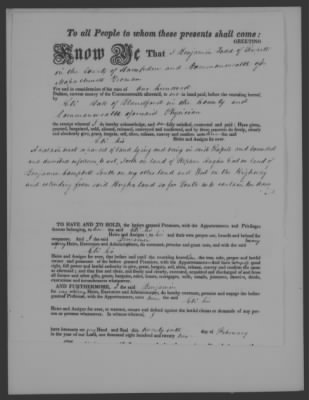 To all People to whom these presents shall come:
GREETING
Know Ye That I Benjamin Todd of
in the County of Hampden and Commonwealth of
Massachusetts Yeoman
For and in consideration of the sum of One hundred
Dollars, current money of the Commonwealth aforesaid, to me in hand paid, before the ensealing hereof,
by Eli Hall of Blandford in the County and
Commonwealth aforesaid Physician
the receipt whereof I do hereby acknowledge, and am fully satisfied, contented and paid: Have given,
granted, bargained, sold, aliened, released, conveyed and confirmed, and by these presents do freely, clearly
and absolutely give, grant, bargain, sell, aliene, release, convey and confirm unto him the said
Eli his Heirs and Assigns for ever
a certain tract or parcel of land lying and being in said and bounded
and described as follows to wit, North on land of Stephen East on land of
Benjamin South on my other land and West on the Highway
and extending from said land so far South as to contain
TO HAVE AND TO HOLD, the before granted Premises, with the Appurtenances and Privileges
thereto belonging, to him the said Eli his
Heirs and Assigns: to his and their own proper use, benefit and behoof for
evermore. And I the said Benjamin for
my Heirs, Executors and Administrators, do covenant, promise and grant unto, and with the said
Eli his
Heirs and Assigns for ever, that before and until the ensealing hereof, the true, sole, proper and lawful
owner and possessor of the before granted Premises, with the Appurtenances—And have in good
right, full power and lawful authority to give, grant, bargain, sell, aliene, release, convey and confirm the same
as aforesaid; and that free and clear, and freely and clearly, executed, acquitted and discharged of and from
all former and other gifts, grants, bargains, sales, leases, mortgages, wills, entails, jointures, dowries, thirds,
executions and incumbrances whatsoever.
AND FURTHERMORE, I the said Benjamin
for my Heirs, Executors and Administrators, do hereby covenant, promise and engage the before
granted Premises, with the Appurtenances, unto him the said Eli his
Heirs and Assigns for ever, to warrant, secure and defend against the lawful claims or demands of any per-
son or persons whatsoever. In witness whereof, I
have hereunto set my Hand and Seal this day of February
in the year of our Lord, one thousand eight hundred and twenty